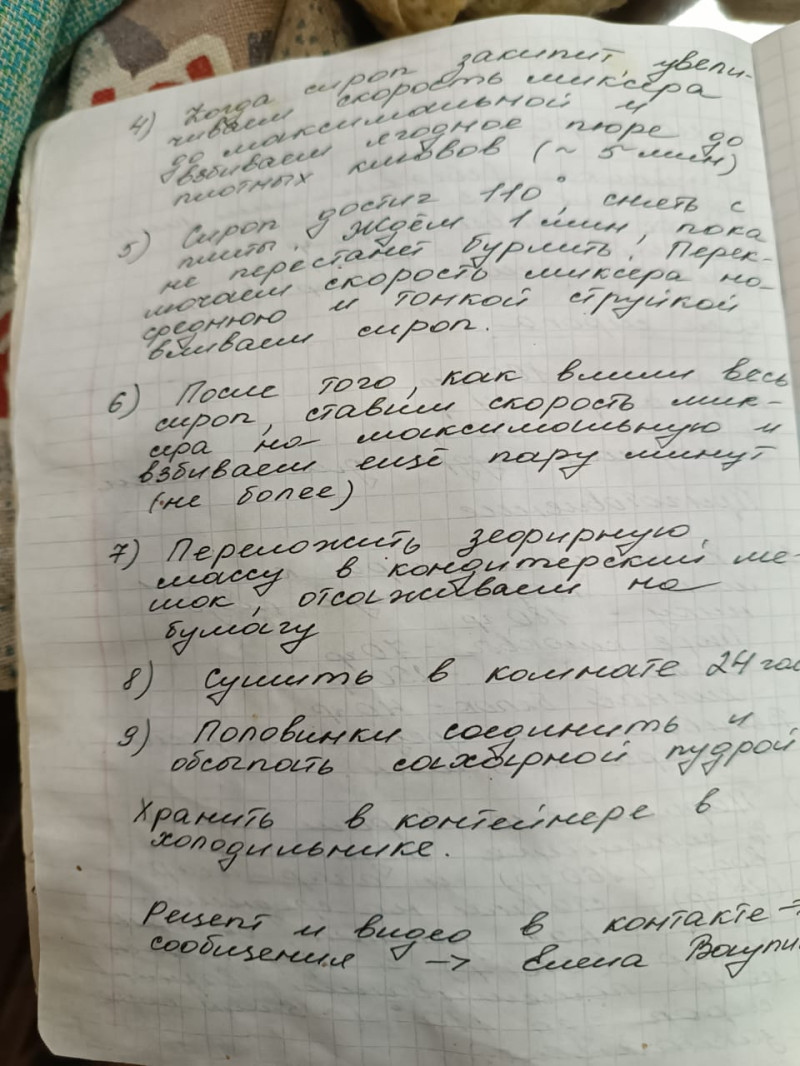 4) Когда сироп закипит, увели-
чиваем скорость миксера
до максимальной и
взбиваем ягодное пюре до
плотных клювов (~ 5 мин)
5) Сироп достиг 110°, снять с
плиты. Ждём 1 мин, пока
не перестанет бурлить. Перек-
лючаем скорость миксера на
среднюю и тонкой струйкой
вливаем сироп.
6) После того, как влили весь
сироп, ставим скорость мик-
сера на максимальную и
взбиваем ещё пару минут
(не более)
7) Переложить зефирную
массу в кондитерский ме-
шок, отсаживаем на
бумагу
8) Сушить в комнате 24 час
9) Половинки соединить и
обсыпать сахарной пудрой
Хранить в контейнере в
холодильнике.
Рецепт и видео в контакте →
сообщения → Елена